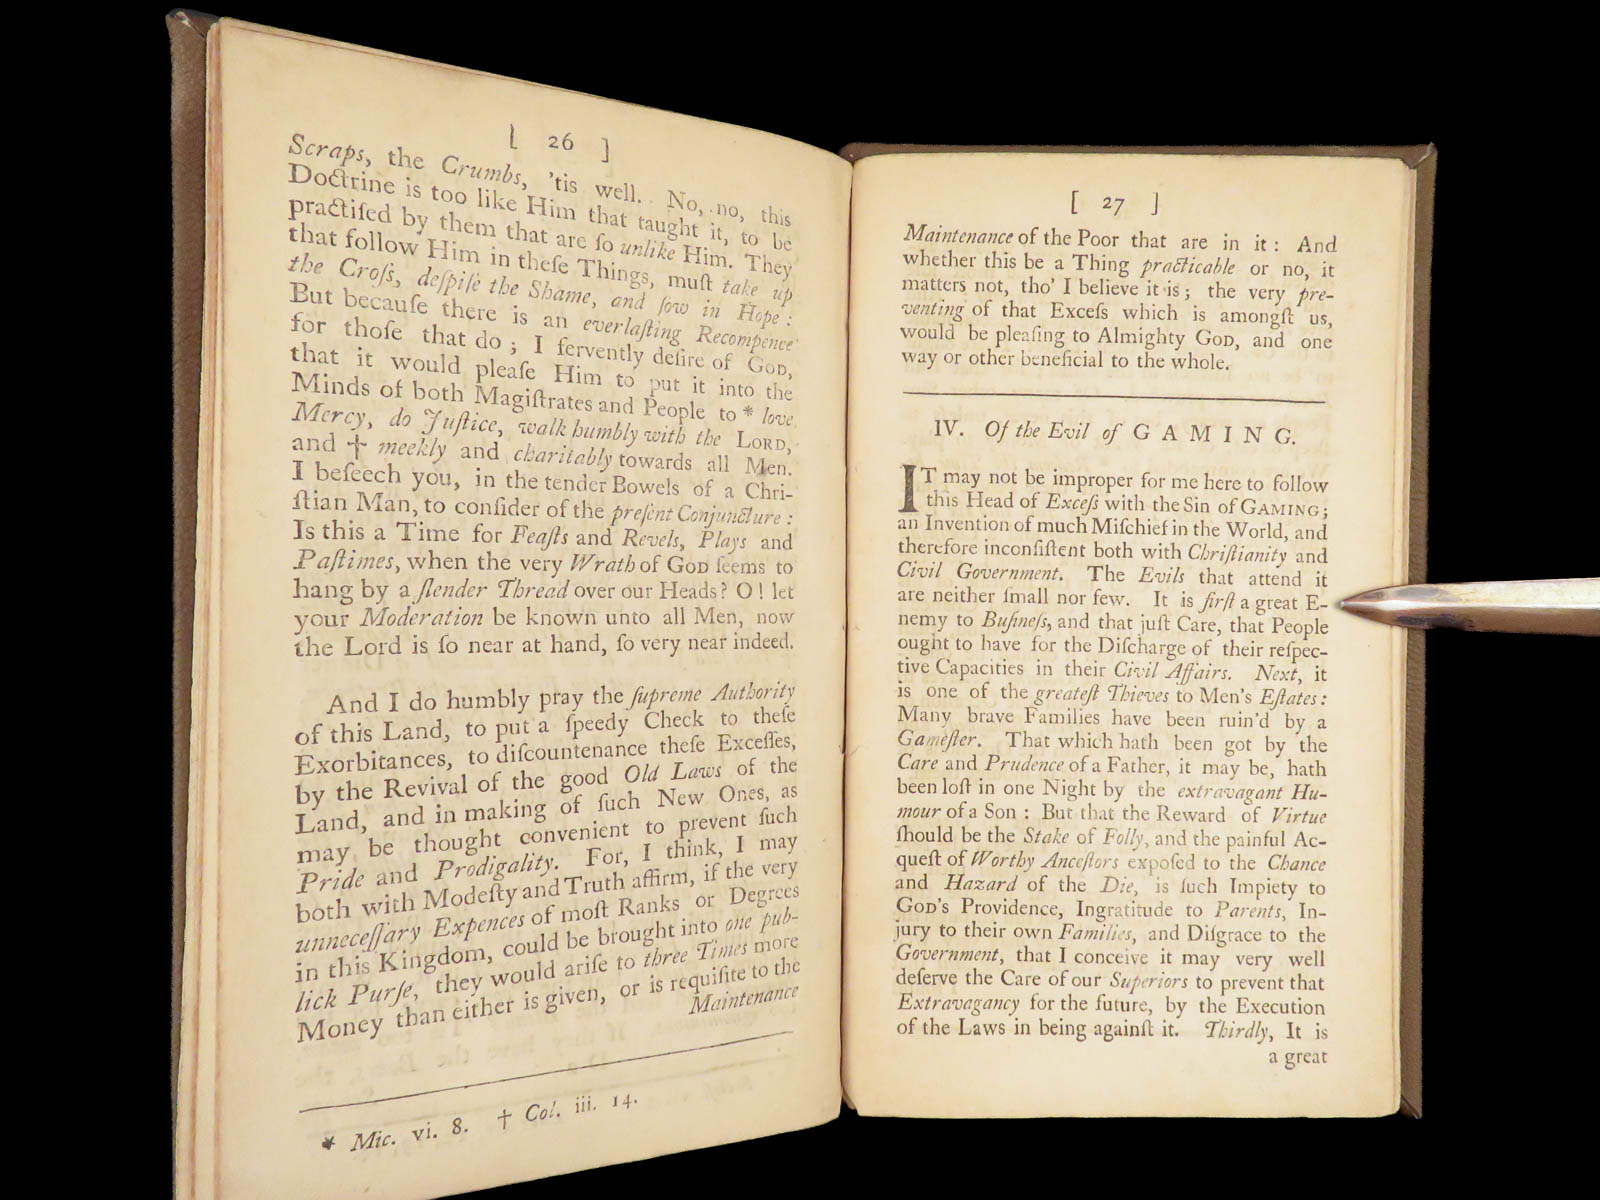 [ 26 ]
Scraps, the Crumbs, 'tis well. No, no, this
Doctrine is too like Him that taught it, to be
practiſed by them that are ſo unlike Him. They
that follow Him in theſe Things, muſt take up
the Croſs, deſpiſe the Shame, and ſow in Hope:
But becauſe there is an everlaſting Recompence
for thoſe that do; I fervently deſire of God,
that it would pleaſe Him to put it into the
Minds of both Magiſtrates and People to * love
Mercy, do Juſtice, walk humbly with the Lord,
and † meekly and charitably towards all Men.
I beſeech you, in the tender Bowels of a Chri-
ſtian Man, to conſider of the preſent Conjuncture:
Is this a Time for Feaſts and Revels, Plays and
Paſtimes, when the very Wrath of God ſeems to
hang by a ſlender Thread over our Heads? O! let
your Moderation be known unto all Men, now
the Lord is ſo near at hand, ſo very near indeed.
And I do humbly pray the ſupreme Authority
of this Land, to put a ſpeedy Check to theſe
Exorbitances, to diſcountenance theſe Exceſſes,
by the Revival of the good Old Laws of the
Land, and in making of ſuch New Ones, as
may be thought convenient to prevent ſuch
Pride and Prodigality. For, I think, I may
both with Modeſty and Truth affirm, if the very
unneceſſary Expences of moſt Ranks or Degrees
in this Kingdom, could be brought into one pub-
lick Purſe, they would ariſe to three Times more
Money than either is given, or is requiſite to the
Maintenance
* Mic. vi. 8. † Col. iii. 14.
[ 27 ]
Maintenance of the Poor that are in it: And
whether this be a Thing practicable or no, it
matters not, tho' I believe it is; the very pre-
venting of that Exceſs which is amongſt us,
would be pleaſing to Almighty God, and one
way or other beneficial to the whole.
IV. Of the Evil of GAMING.
IT may not be improper for me here to follow
this Head of Exceſs with the Sin of GAMING;
an Invention of much Miſchief in the World, and
therefore inconſiſtent both with Chriſtianity and
Civil Government. The Evils that attend it
are neither ſmall nor few. It is firſt a great E-
nemy to Buſineſs, and that juſt Care, that People
ought to have for the Diſcharge of their reſpec-
tive Capacities in their Civil Affairs. Next, it
is one of the greateſt Thieves to Men's Eſtates:
Many brave Families have been ruin'd by a
Gameſter. That which hath been got by the
Care and Prudence of a Father, it may be, hath
been loſt in one Night by the extravagant Hu-
mour of a Son: But that the Reward of Virtue
ſhould be the Stake of Folly, and the painful Ac-
queſt of Worthy Anceſtors expoſed to the Chance
and Hazard of the Die, is ſuch Impiety to
God's Providence, Ingratitude to Parents, In-
jury to their own Families, and Diſgrace to the
Government, that I conceive it may very well
deſerve the Care of our Superiors to prevent that
Extravagancy for the future, by the Execution
of the Laws in being againſt it. Thirdly, It is
a great